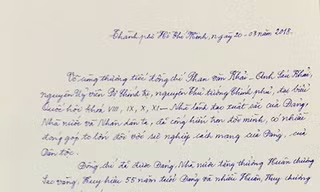 Thành phố Hồ Chí Minh, ngày 20-03 năm 2018.
Vô cùng thương tiếc đồng chí Phan Văn Khải - Anh Sáu Khải,
nguyên Ủy viên Bộ Chính trị, nguyên Thủ tướng Chính phủ, đại biểu
Quốc hội khóa VIII, IX, X, XI - Nhà lãnh đạo xuất sắc của Đảng,
Nhà nước và Nhân dân ta, đã cống hiến đời mình, có nhiều
đóng góp to lớn đối với sự nghiệp cách mạng của Đảng, của
Dân tộc.
Đồng chí đã được Đảng, Nhà nước tặng thưởng Huân chương
Sao vàng, Huy hiệu 55 năm tuổi Đảng và nhiều Huân, Huy chương